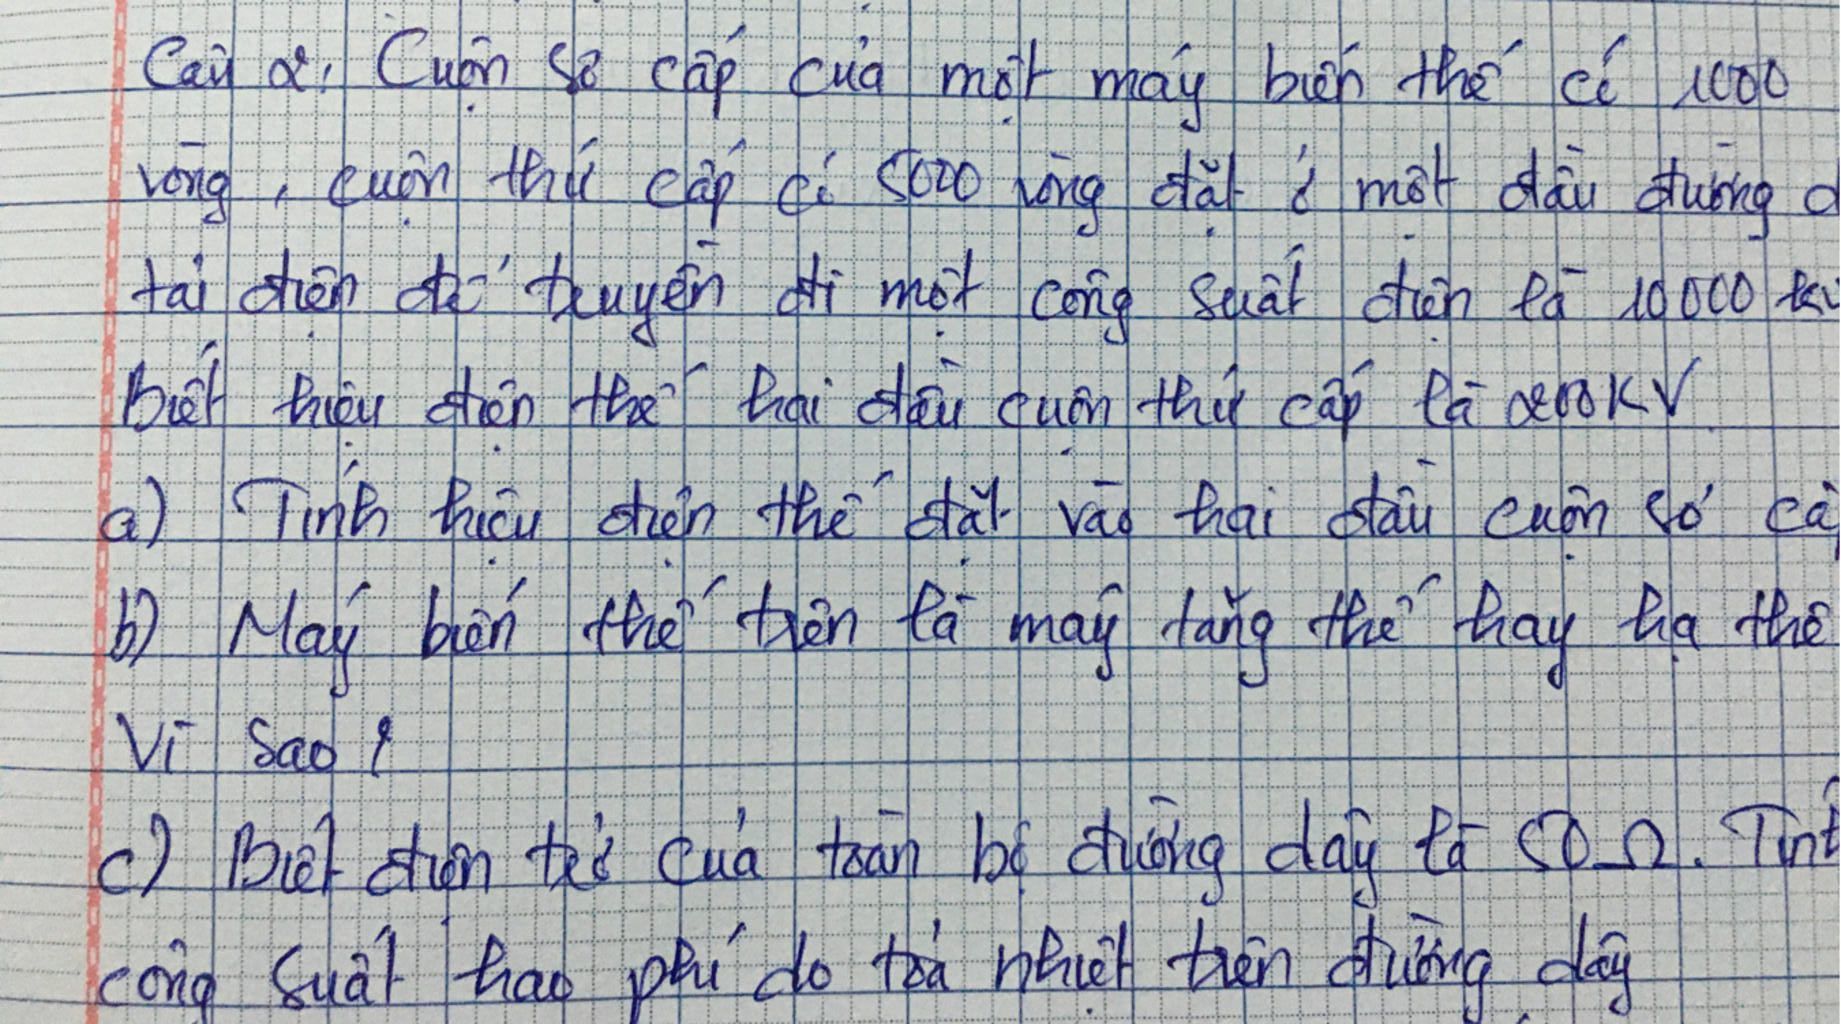 Câu 2: Cuộn sơ cấp của một máy biến thế có 1000
vòng, cuộn thứ cấp có 5000 vòng đặt ở một đầu đường
tải điện để truyền đi một công suất điện là 10000
Biết hiệu điện thế hai đầu cuộn thứ cấp là 200KV.
a) Tính hiệu điện thế đặt vào hai đầu cuộn sơ
b) Máy biến thế trên là máy tăng thế hay hạ thế
Vì sao?
c) Biết điện trở của toàn bộ đường dây là 50Ω. Tính
công suất hao phí do toả nhiệt trên đường dây